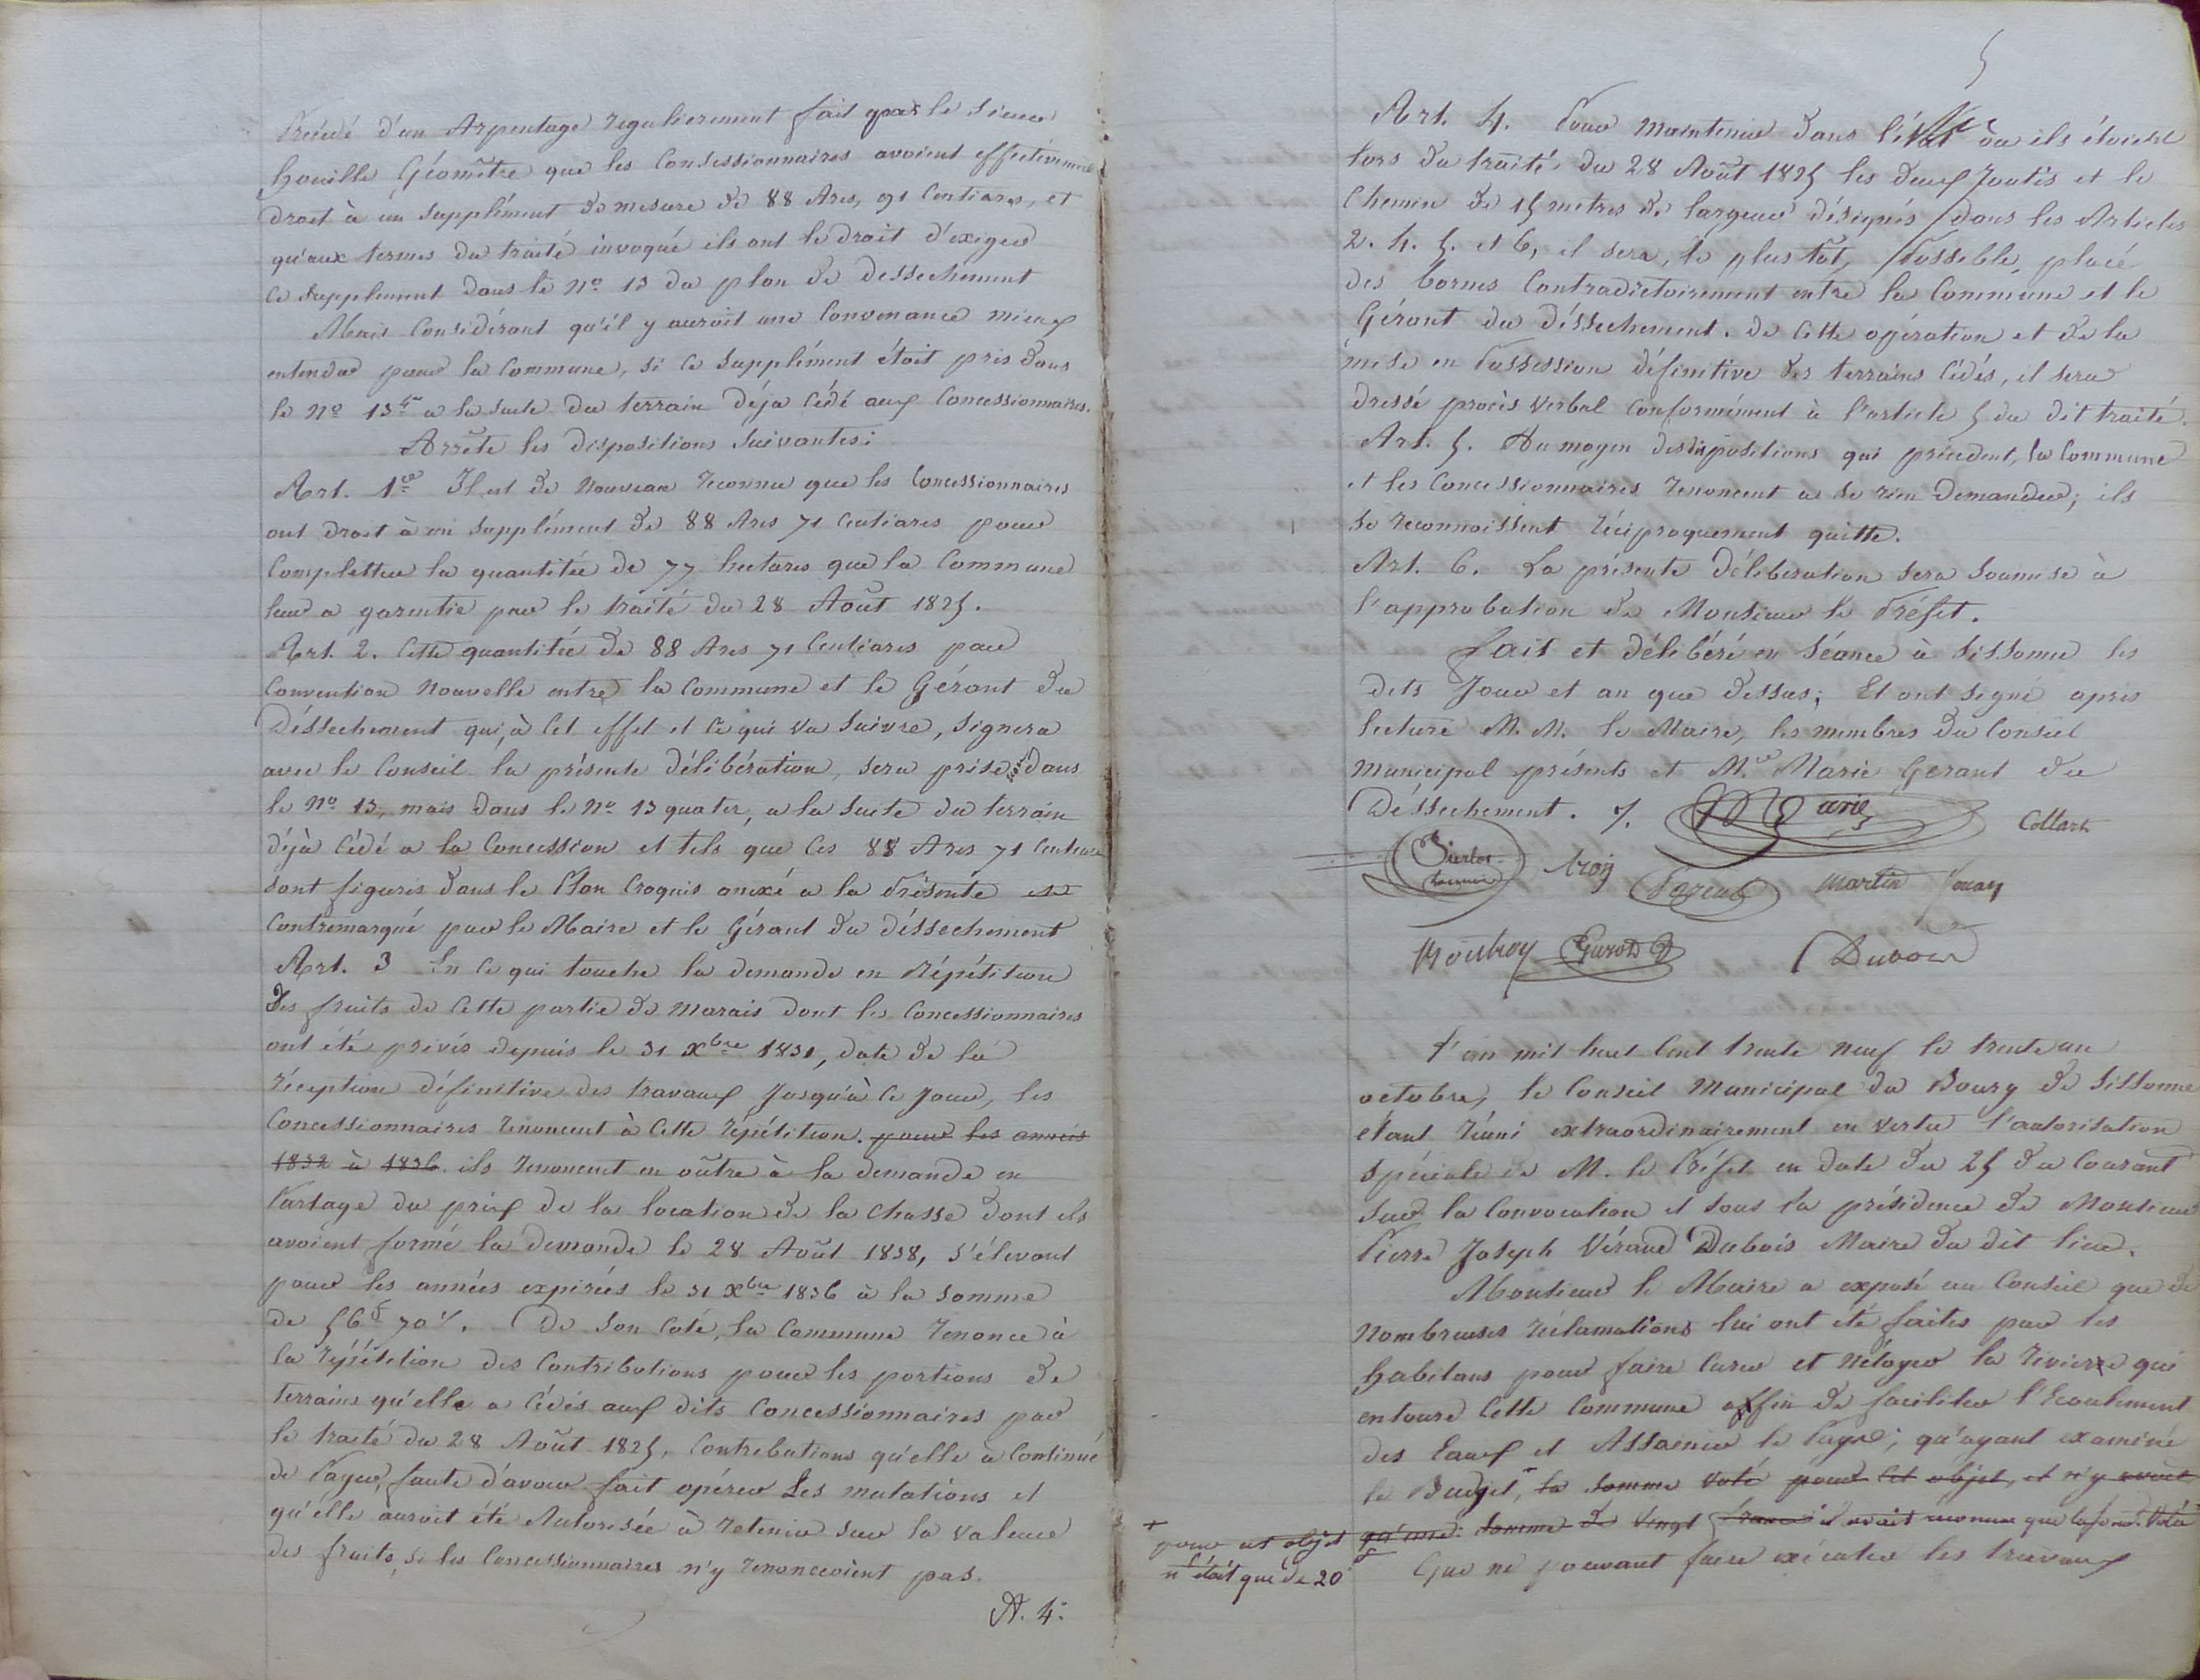 Précédé d'un Arpentage régulierement fait par le Sieur
houille Géomètre que les Concessionnaires avoient effectivement
droit à un supplément de mesure de 88 Ares, 91 Centiares, et
qu'aux termes du traité invoqué ils ont le droit d'exiger
ce supplement dans le No 13 du plan de dessechement
Mais Considérant qu'il y auroit une Convenance mieux
entendue pour la Commune, si ce supplément étoit pris dans
le No 13 4er a la suite du terrain déja Cédé aux Concessionnaires.
Arrête les dispositions suivantes:
Art. 1er Il est de nouveau reconnu que les Concessionnaires
ont droit à un supplément de 88 Ares 71 Centiares pour
Completter la quantitée de 77 hectares que la Commune
leur a garentie par le traité du 28 Août 1825.
Art. 2. Cette quantitée de 88 Ares 71 Centiares par
Convention nouvelle entre la Commune et le Gérant du
Déssechement qui, à Cet effet et ce qui va suivre, signera
avec le Conseil la présente délibération, sera prise non dans
le No 13, mais dans le No 13 quater, a la suite du terrain
déjà Cédé a la Concession et tels que Ces 88 Ares 71 Centiares
sont figurés dans le Plan Croquis anexé a la Présente et
Contremarqué par le Maire et le Gérant du déssechement
Art. 3 En ce qui touche la demande en Répétition
des fruits de Cette partie de Marais dont les Concessionnaires
ont été privés depuis le 31 Xbre 1831, date de la
réception définitive des travaux jusqu'à ce jour, les
Concessionnaires renoncent à Cette répétition. pour les années
1832 à 1836. ils renoncent en oûtre à la demande en
Partage du prix de la location de la Chasse dont ils
avoient formé la demande le 28 Août 1838, s'élevant
pour les années expirées le 31 Xbre 1836 à la somme
de 56f 70c. De son Coté, la Commune renonce à
la répétition des Contributions pour les portions de
terrains qu'elle a Cédés aux dits Concessionnaires par
le traité du 28 Août 1825, Contributions qu'elle a Continué
de Payer, faute d'avoir fait opérer Les mutations et
qu'elle auroit été Autorisée à retenir sur la valeur
des fruits, si les Concessionnaires n'y renoncevient pas.
A. 4.
5
Art. 4. Pour Maintenir dans l'état où ils étoient
lors du traité du 28 Août 1825 les deux Routis et le
Chemin de 15 metres de largeur désignés dans les Articles
2. 4. 5. et 6, il sera, le plus tôt, Possible, placé
des bornes Contradictoirement entre la Commune et le
Gérant du déssechement. de Cette opération et de la
mise en Possession définitive des terrains Cédés, il sera
dressé procès verbal Conformément à l'article 5 du dit traité.
Art. 5. Au moyen des dispositions qui précedent, la Commune
et les Concessionnaires renoncent a se rien Demander; ils
se reconnoissent réciproquement quitte.
Art. 6. La présente Délibération sera soumise à
l'approbation de Monsieur le Préfet.
fait et délibéré en séance à Sissonne les
dits Jour et an que dessus; Et ont signé après
lecture M.M. le Maire, les membres du Conseil
Municipal présents et Mr Marie Gerant du
Déssechement. /.
Marie
Collart
troij
Parent
Martin
Dubois
L'an mil huit Cent trente neuf le trente un
octobre, le Conseil Municipal du Bourg de Sissonne
étant réuni extraordinairement en vertu l'autorisation
spéciale de M. le Préfet en date du 25 du Courant
sur la Convocation et sous la présidence de Monsieur
Pierre Joseph Véraud Dubois Maire du dit lieu.
Monsieur le Maire a exposé au Conseil que de
Nombreuses réclamations lui ont été faites par les
habitans pour faire Curer et Nétoyer la riviere qui
entoure Cette Commune affin de faciliter l'Ecoulement
des Eaux et Assainir le Pays; qu'ayant examiné
le Budget, la somme voté pour Cet objet, et n'y avoit
qu'une somme de vingt francs il avait reconnu que le fond voté
+ pour cet objet
n'était que de 20f
Que ne pouvant faire exécuter les travaux